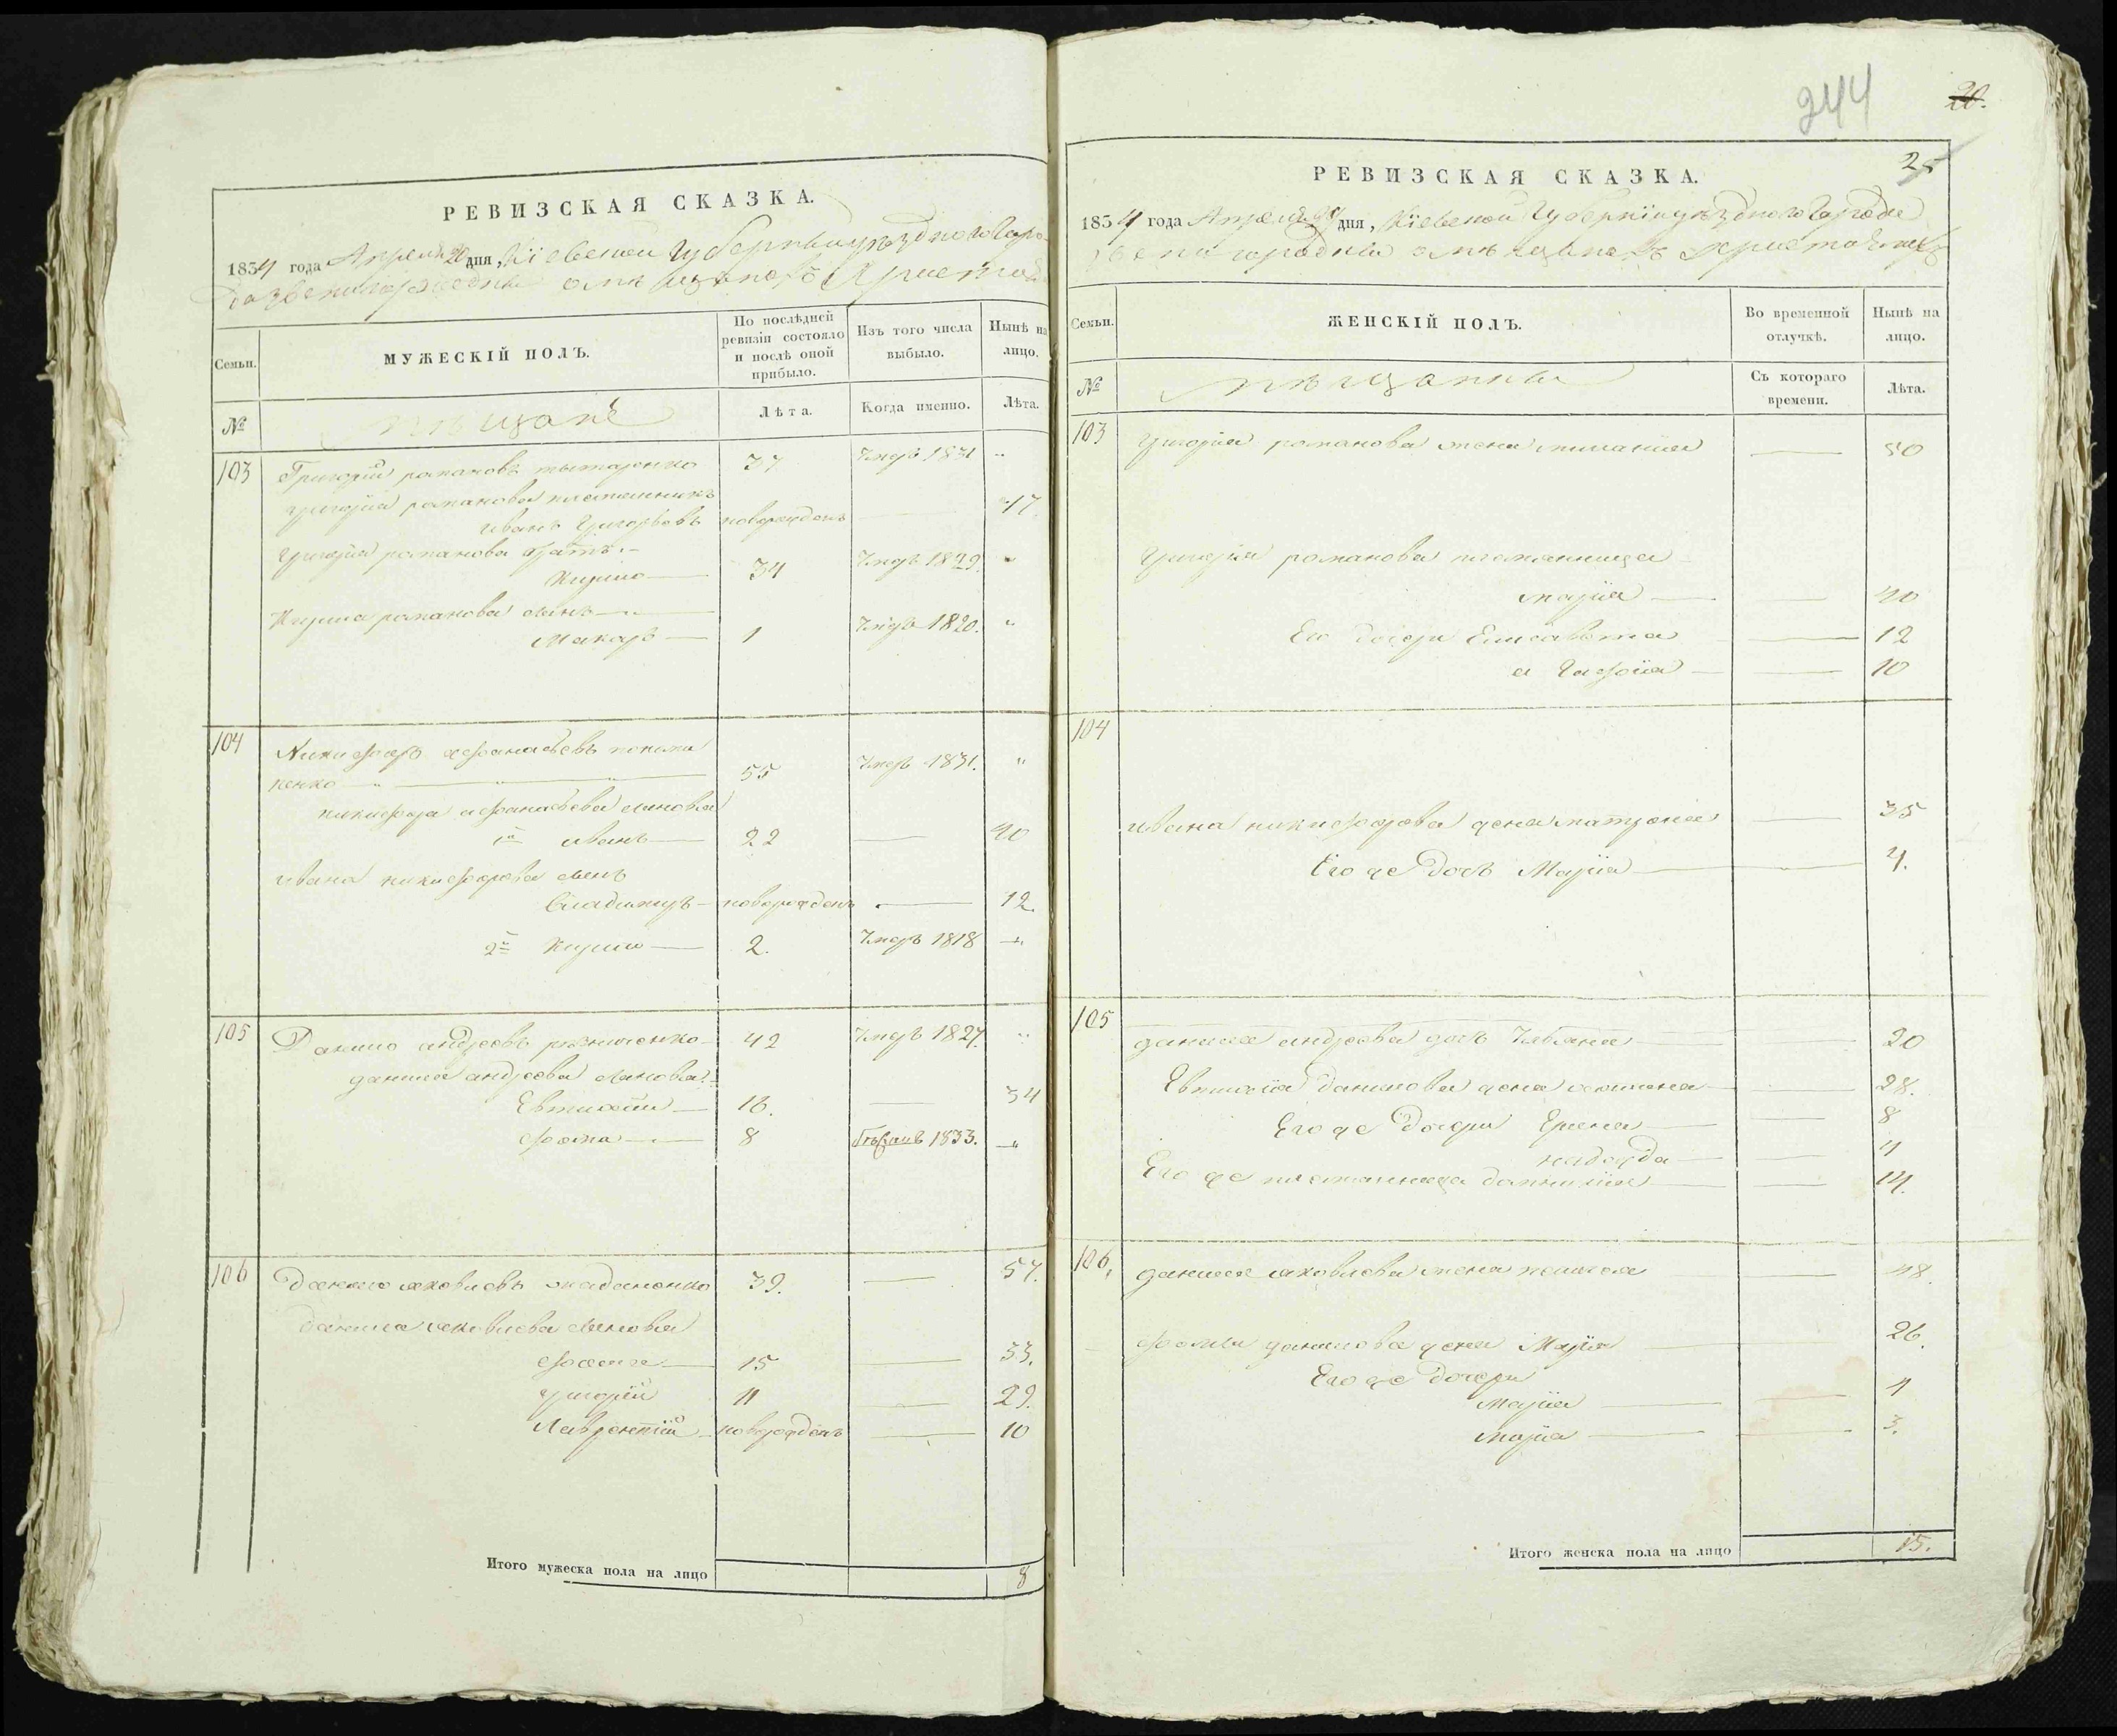 244
20.
25
РЕВИЗСКАЯ СКАЗКА.
1834 года Апреля 20 дня, Кіевской Губерніи уѣзднаго Горо-
да Звенигородки о мѣщанахъ Христіан
Семьи.
МУЖЕСКІЙ ПОЛЪ.
По послѣдней ревизіи состояло и послѣ оной прибыло.
Изъ того числа выбыло.
Нынѣ на лицо.
№
мѣщане
Лѣта.
Когда именно.
Лѣта.
103 Григорій романовъ 37 Умеръ 1831 "
григорія романова племянникъ
иванъ Григорьевъ новорожденъ 17.
Григорія романова братъ
Кирило 34 Умеръ 1829. "
Кирила романова сынъ
Макаръ 1 Умеръ 1820. "
104 Никифоръ афанасьевъ
ненко 55 Умеръ 1831. "
никифора афанасьева сыновья
1й иванъ 22 40
ивана никифорова сынъ
Владимиръ новорожденъ 12.
2й Кирило 2. Умеръ 1818 "
105 Данило андреевъ 42 Умеръ 1827. "
данила андреева сыновья
Евтихій 16. 34
фома 8 1833. "
106 Данило яковлевъ 39. 57.
данила яковлева сыновья
фома 15 33.
григорій 11 29.
Лаврентій новорожденъ 10
Итого мужеска пола на лицо 8
РЕВИЗСКАЯ СКАЗКА.
1834 года Апреля 20 дня, Кіевской Губерніи уѣзднаго Города
Звенигородки о мѣщанахъ
Семьи.
ЖЕНСКІЙ ПОЛЪ.
Во временной отлучкѣ.
Нынѣ на лицо.
№
мѣщанки
Съ котораго времени.
Лѣта.
103 Григорія романова жена меланія 50
Григорія романова племянница
марія 40
Его дочери Елисавета 12
агафія 10
104
ивана никифорова жена матрона 35
Его же дочь Марія 4.
105 данила андреева дочь Ульяна 20
Евтихія данилова жена 28.
Его же дочери 8
надежда 4
Его же племянница 14.
106. данила яковлева жена пелагея 48.
фомы данилова жена Марія 26.
Его же дочери
Марія 4
марія 3.
Итого женска пола на лицо 15.